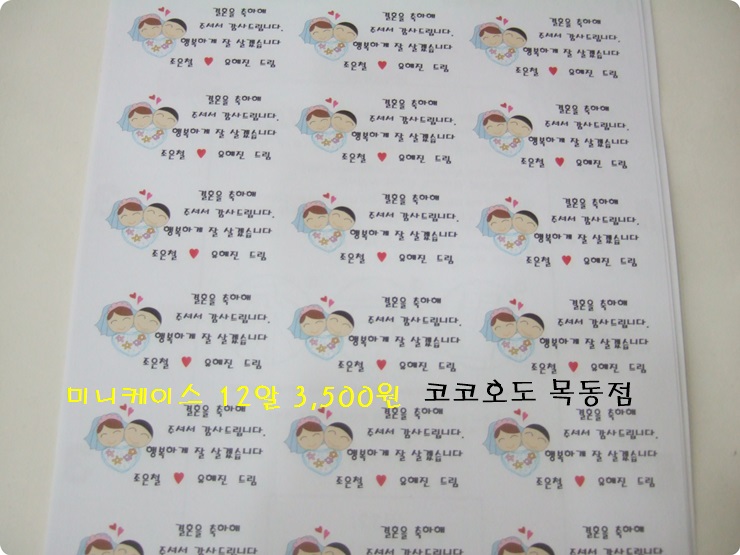 결혼을 축하해
주셔서 감사드립니다.
행복하게 잘 살겠습니다
조은철 ♥ 유혜진 드림
결혼을 축하해
주셔서 감사드립니다.
행복하게 잘 살겠습니다
조은철 ♥ 유혜진 드림
결혼을 축하해
주셔서 감사드립니다.
행복하게 잘 살겠습니다
조은철 ♥ 유혜진 드림
결혼을 축하해
주셔서 감사드립니다.
행복하게 잘 살겠습니다
조은철 ♥ 유혜진 드림
결혼을 축하해
주셔서 감사드립니다.
행복하게 잘 살겠습니다
조은철 ♥ 유혜진 드림
결혼을 축하해
주셔서 감사드립니다.
행복하게 잘 살겠습니다
조은철 ♥ 유혜진 드림
결혼을 축하해
주셔서 감사드립니다.
행복하게 잘 살겠습니다
조은철 ♥ 유혜진 드림
결혼을 축하해
주셔서 감사드립니다.
행복하게 잘 살겠습니다
조은철 ♥ 유혜진 드림
결혼을 축하해
주셔서 감사드립니다.
행복하게 잘 살겠습니다
조은철 ♥ 유혜진 드림
결혼을 축하해
주셔서 감사드립니다.
행복하게 잘 살겠습니다
조은철 ♥ 유혜진 드림
결혼을 축하해
주셔서 감사드립니다.
행복하게 잘 살겠습니다
조은철 ♥ 유혜진 드림
결혼을 축하해
주셔서 감사드립니다.
행복하게 잘 살겠습니다
조은철 ♥ 유혜진 드림
미니케이스 12알 3,500원 코코호도 목동점
결혼을 축하해
주셔서 감사드립니다.
행복하게 잘 살겠습니다
조은철 ♥ 유혜진 드림
결혼을 축하해
주셔서 감사드립니다.
행복하게 잘 살겠습니다
조은철 ♥ 유혜진 드림
결혼을 축하해
주셔서 감사드립니다.
행복하게 잘 살겠습니다
조은철 ♥ 유혜진 드림
결혼을 축하해
결혼을 축하해
결혼을 축하해